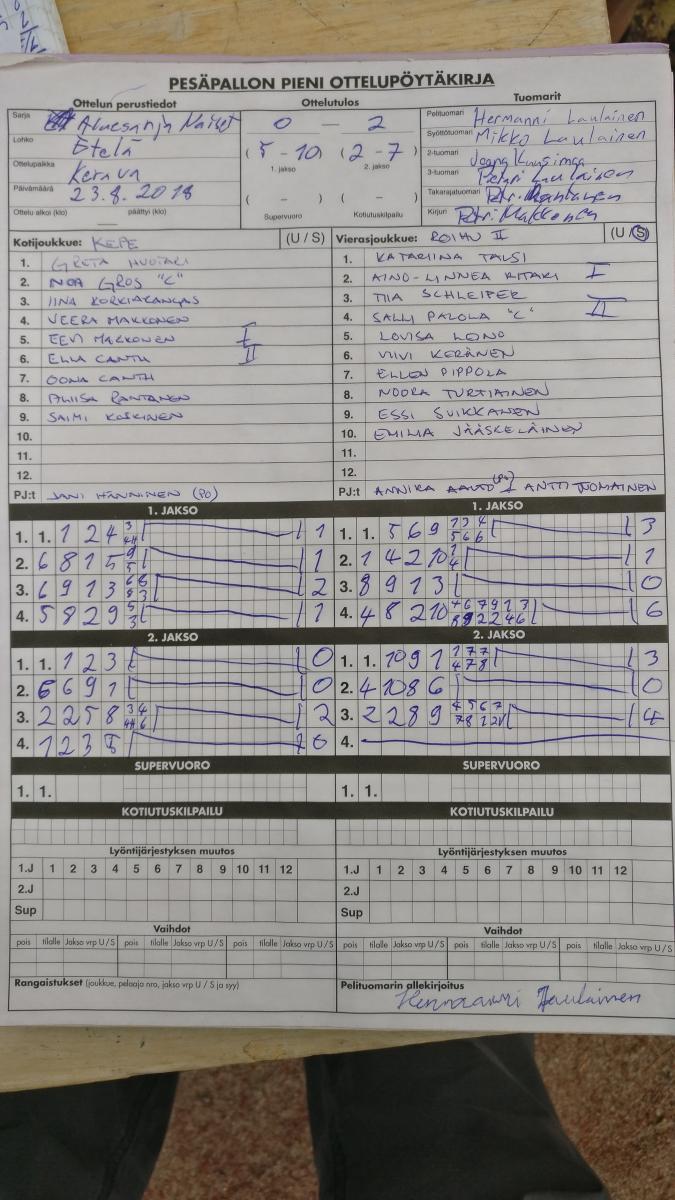 PESÄPALLON PIENI OTTELUPÖYTÄKIRJA
Ottelun perustiedot
Sarja Aluesarja Naiset
Lohko Etelä
Ottelupaikka Kerava
Päivämäärä 23.8.2018
Ottelu alkoi (klo) päättyi (klo)
Ottelutulos
0 – 2
(5 - 10) (2 - 7)
1. jakso 2. jakso
( – ) ( – )
Supervuoro Kotiutuskilpailu
Tuomarit
Pelituomari Hermanni Laulainen
Syöttötuomari Mikko Laulainen
2-tuomari
3-tuomari Laulainen
Takarajatuomari
Kirjuri Petri Makkonen
Kotijoukkue: KEPE (U / S)
1. GRETA HUOTARI
2. NOA GROS "C"
3. IINA KORKIAKANGAS
4. VEERA MAKKONEN
5. EEVI MAKKONEN I
6. ELLA CANTH II
7. OONA CANTH
8. ALIISA RANTANEN
9. SAIMI KOSKINEN
10.
11.
12.
PJ:t JANI HÄNNINEN (PO)
Vierasjoukkue: ROIHU II (U / S)
1. KATARIINA TALSI
2. AINO-LINNEA RITARI I
3. TIIA SCHLEIFER
4. SALLI PALOLA "C" II
5. LOVISA LÖNÖ
6. VIIVI KERÄNEN
7. ELLEN PIPPOLA
8. NOORA TURTIAINEN
9. ESSI SUIKKANEN
10. EMILIA JÄÄSKELÄINEN
11.
12.
PJ:t ANNIKA AALTO (PO) ANTTI TUOMAINEN
1. JAKSO
1. 1. 1 2 4 3 1
2. 6 8 1 5 9 5 1
3. 6 9 1 3 2
4. 5 8 2 9 5 3 1
2. JAKSO
1. 1. 1 2 3 0
2. 6 6 9 1 0
3. 2 2 5 8 3 4 2
4. 1 2 3 0
SUPERVUORO
1. 1.
KOTIUTUSKILPAILU
Lyöntijärjestyksen muutos
1.J 1 2 3 4 5 6 7 8 9 10 11 12
2.J
Sup
Vaihdot
pois tilalle Jakso vrp U/S pois tilalle Jakso vrp U/S pois tilalle Jakso vrp U/S
Rangaistukset (joukkue, pelaaja nro, jakso vrp U / S ja syy)
1. JAKSO
1. 1. 5 6 9 1 3 4 5 6 6 3
2. 1 4 2 10 1 4 1
3. 8 9 1 3 0
4. 4 8 2 10 4 6 7 9 1 3 8 9 2 2 4 6 6
2. JAKSO
1. 1. 10 9 1 1 7 7 4 7 8 3
2. 4 10 8 6 0
3. 2 2 8 9 4 5 6 7 7 8 1 2 4
4.
SUPERVUORO
1. 1.
KOTIUTUSKILPAILU
Lyöntijärjestyksen muutos
1.J 1 2 3 4 5 6 7 8 9 10 11 12
2.J
Sup
Vaihdot
pois tilalle Jakso vrp U/S pois tilalle Jakso vrp U/S pois tilalle Jakso vrp U/S
Pelituomarin allekirjoitus
Hermanni Laulainen